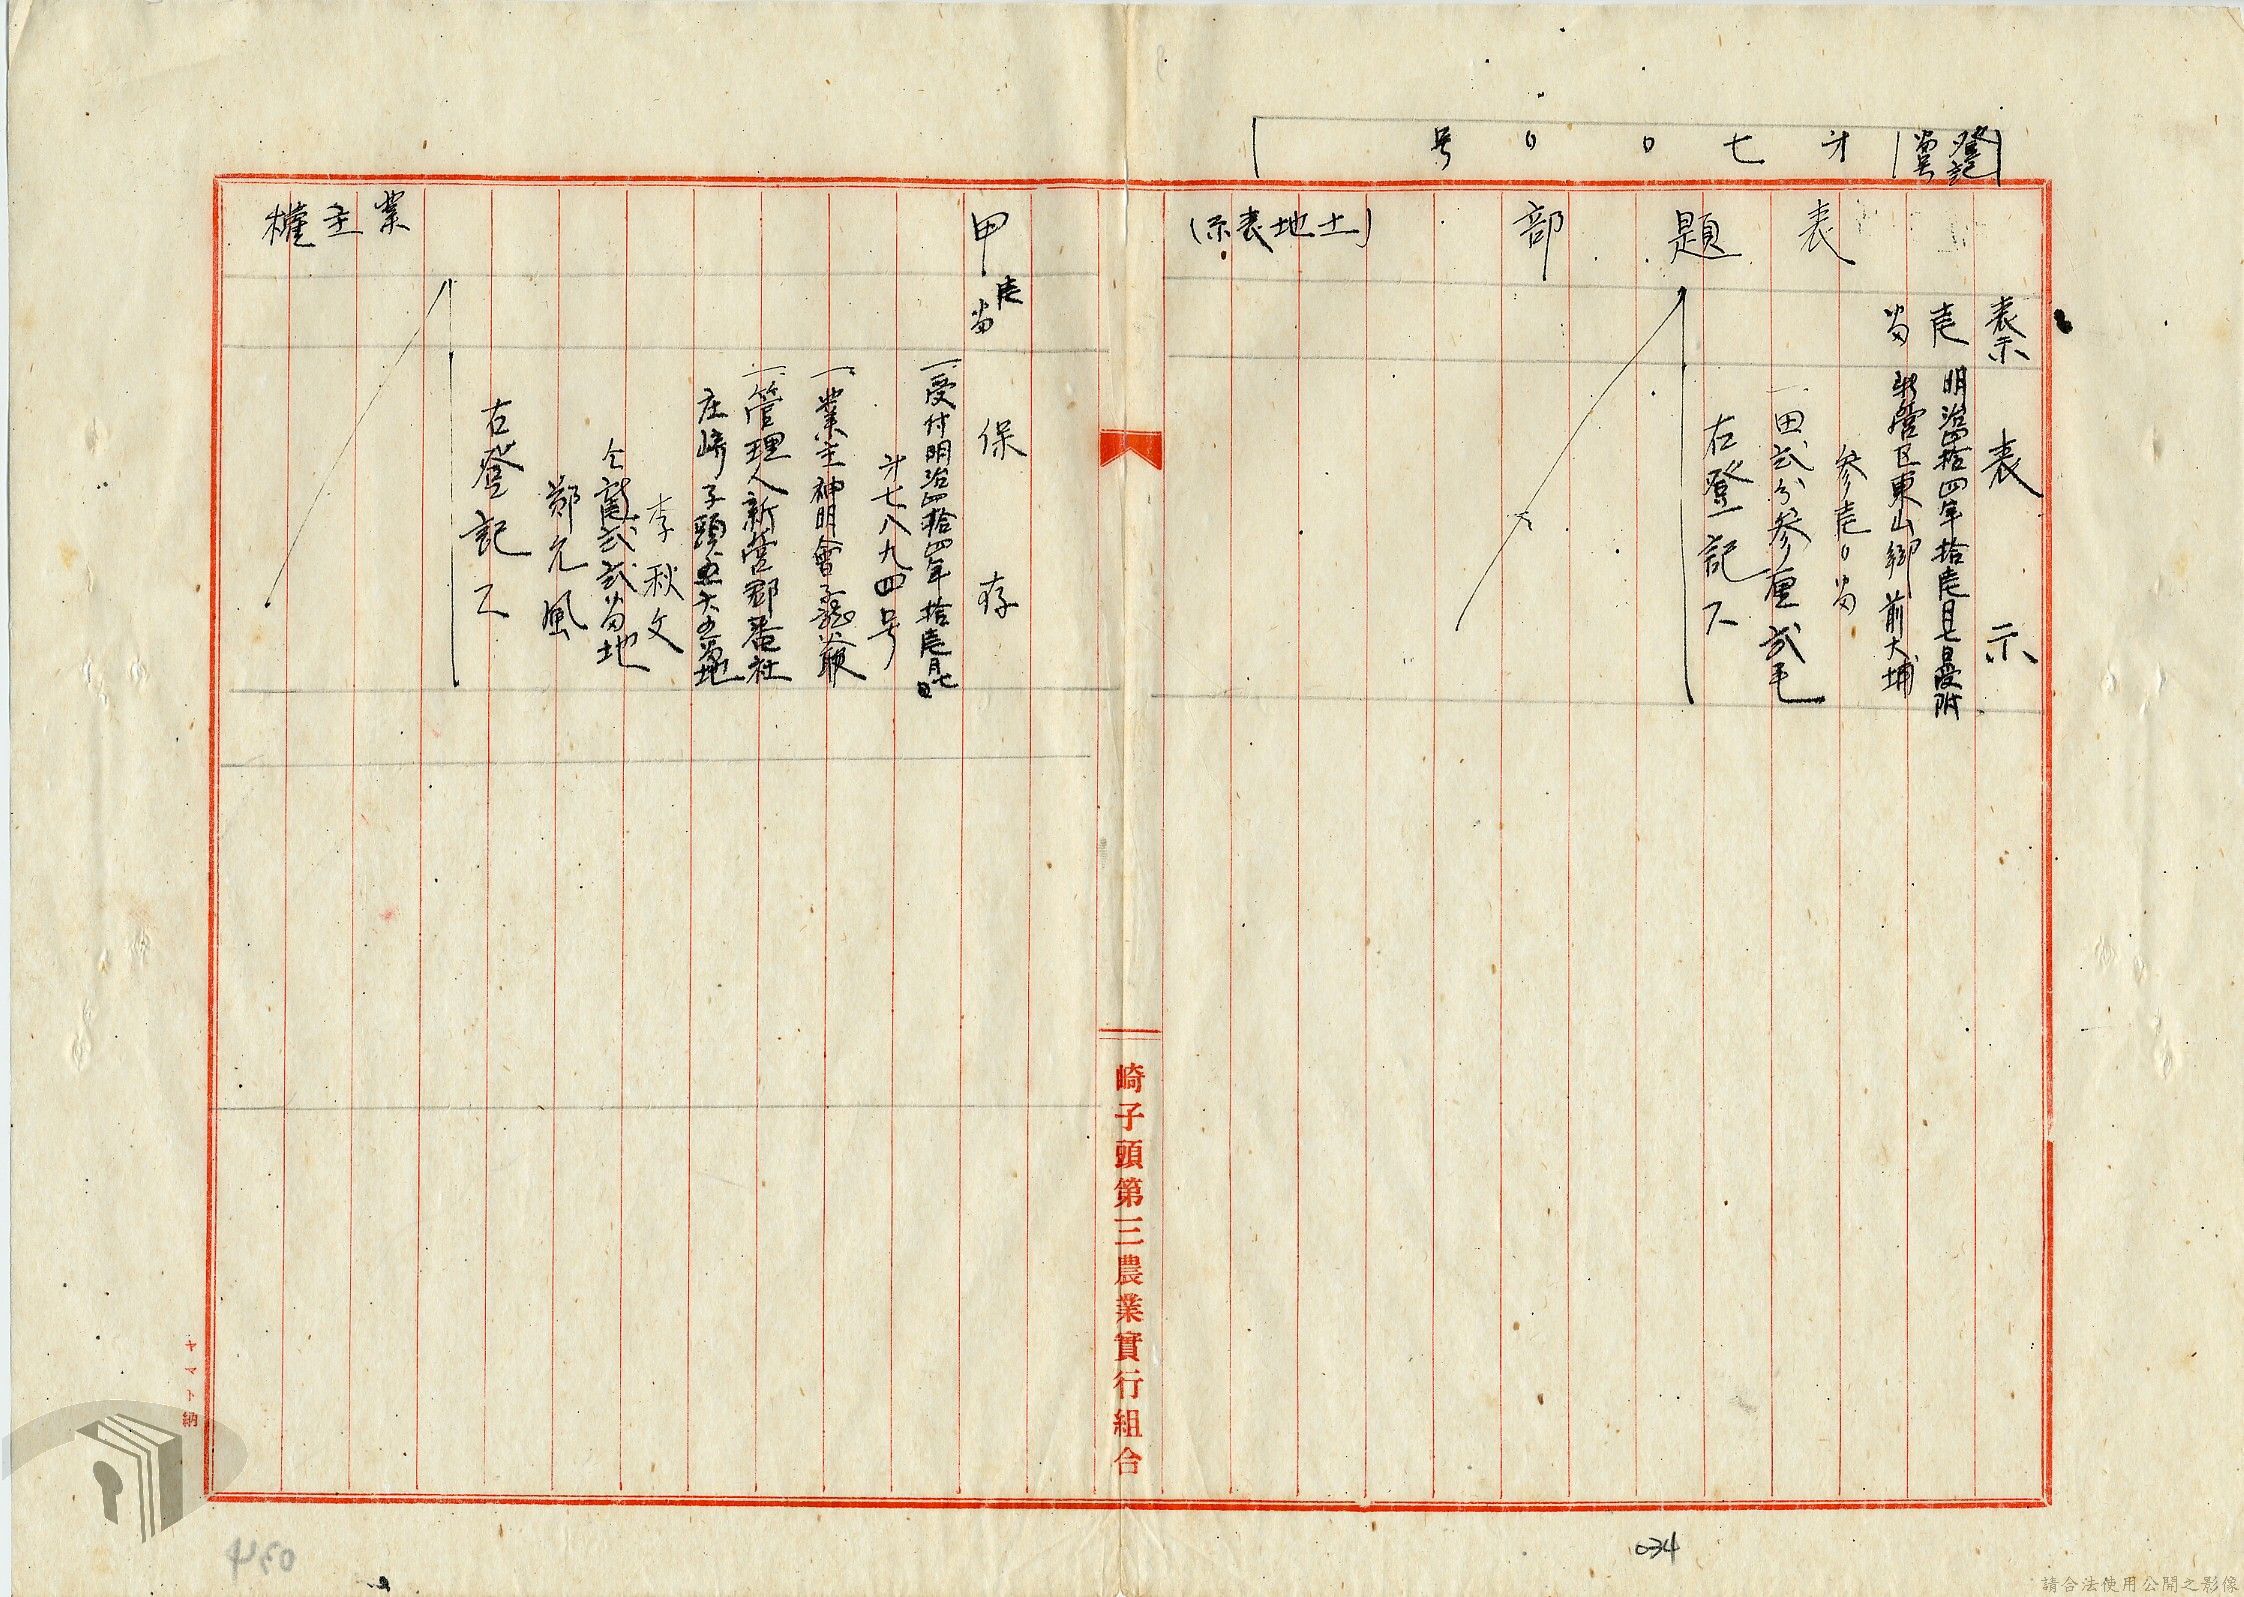 登記
番号
才七００号
表題部
(土地表示)
表示
表示
壱番
明治四拾四年拾壱月七日受附
新営区東山郷前大埔
参壱０番
一田弍分参厘弍毛
右登記ス
崎子頭第三農業實行組合
甲
壱番
保存
一受付明治四拾四年拾壱月七日
才七八九四号
一業主神明會
一管理人新営郡番社
庄崎子頭五六五番地
李秋文
仝所弍弍番地
鄭元風
右登記ス
業主權
ヤマト納
034
請合法使用公開之影像